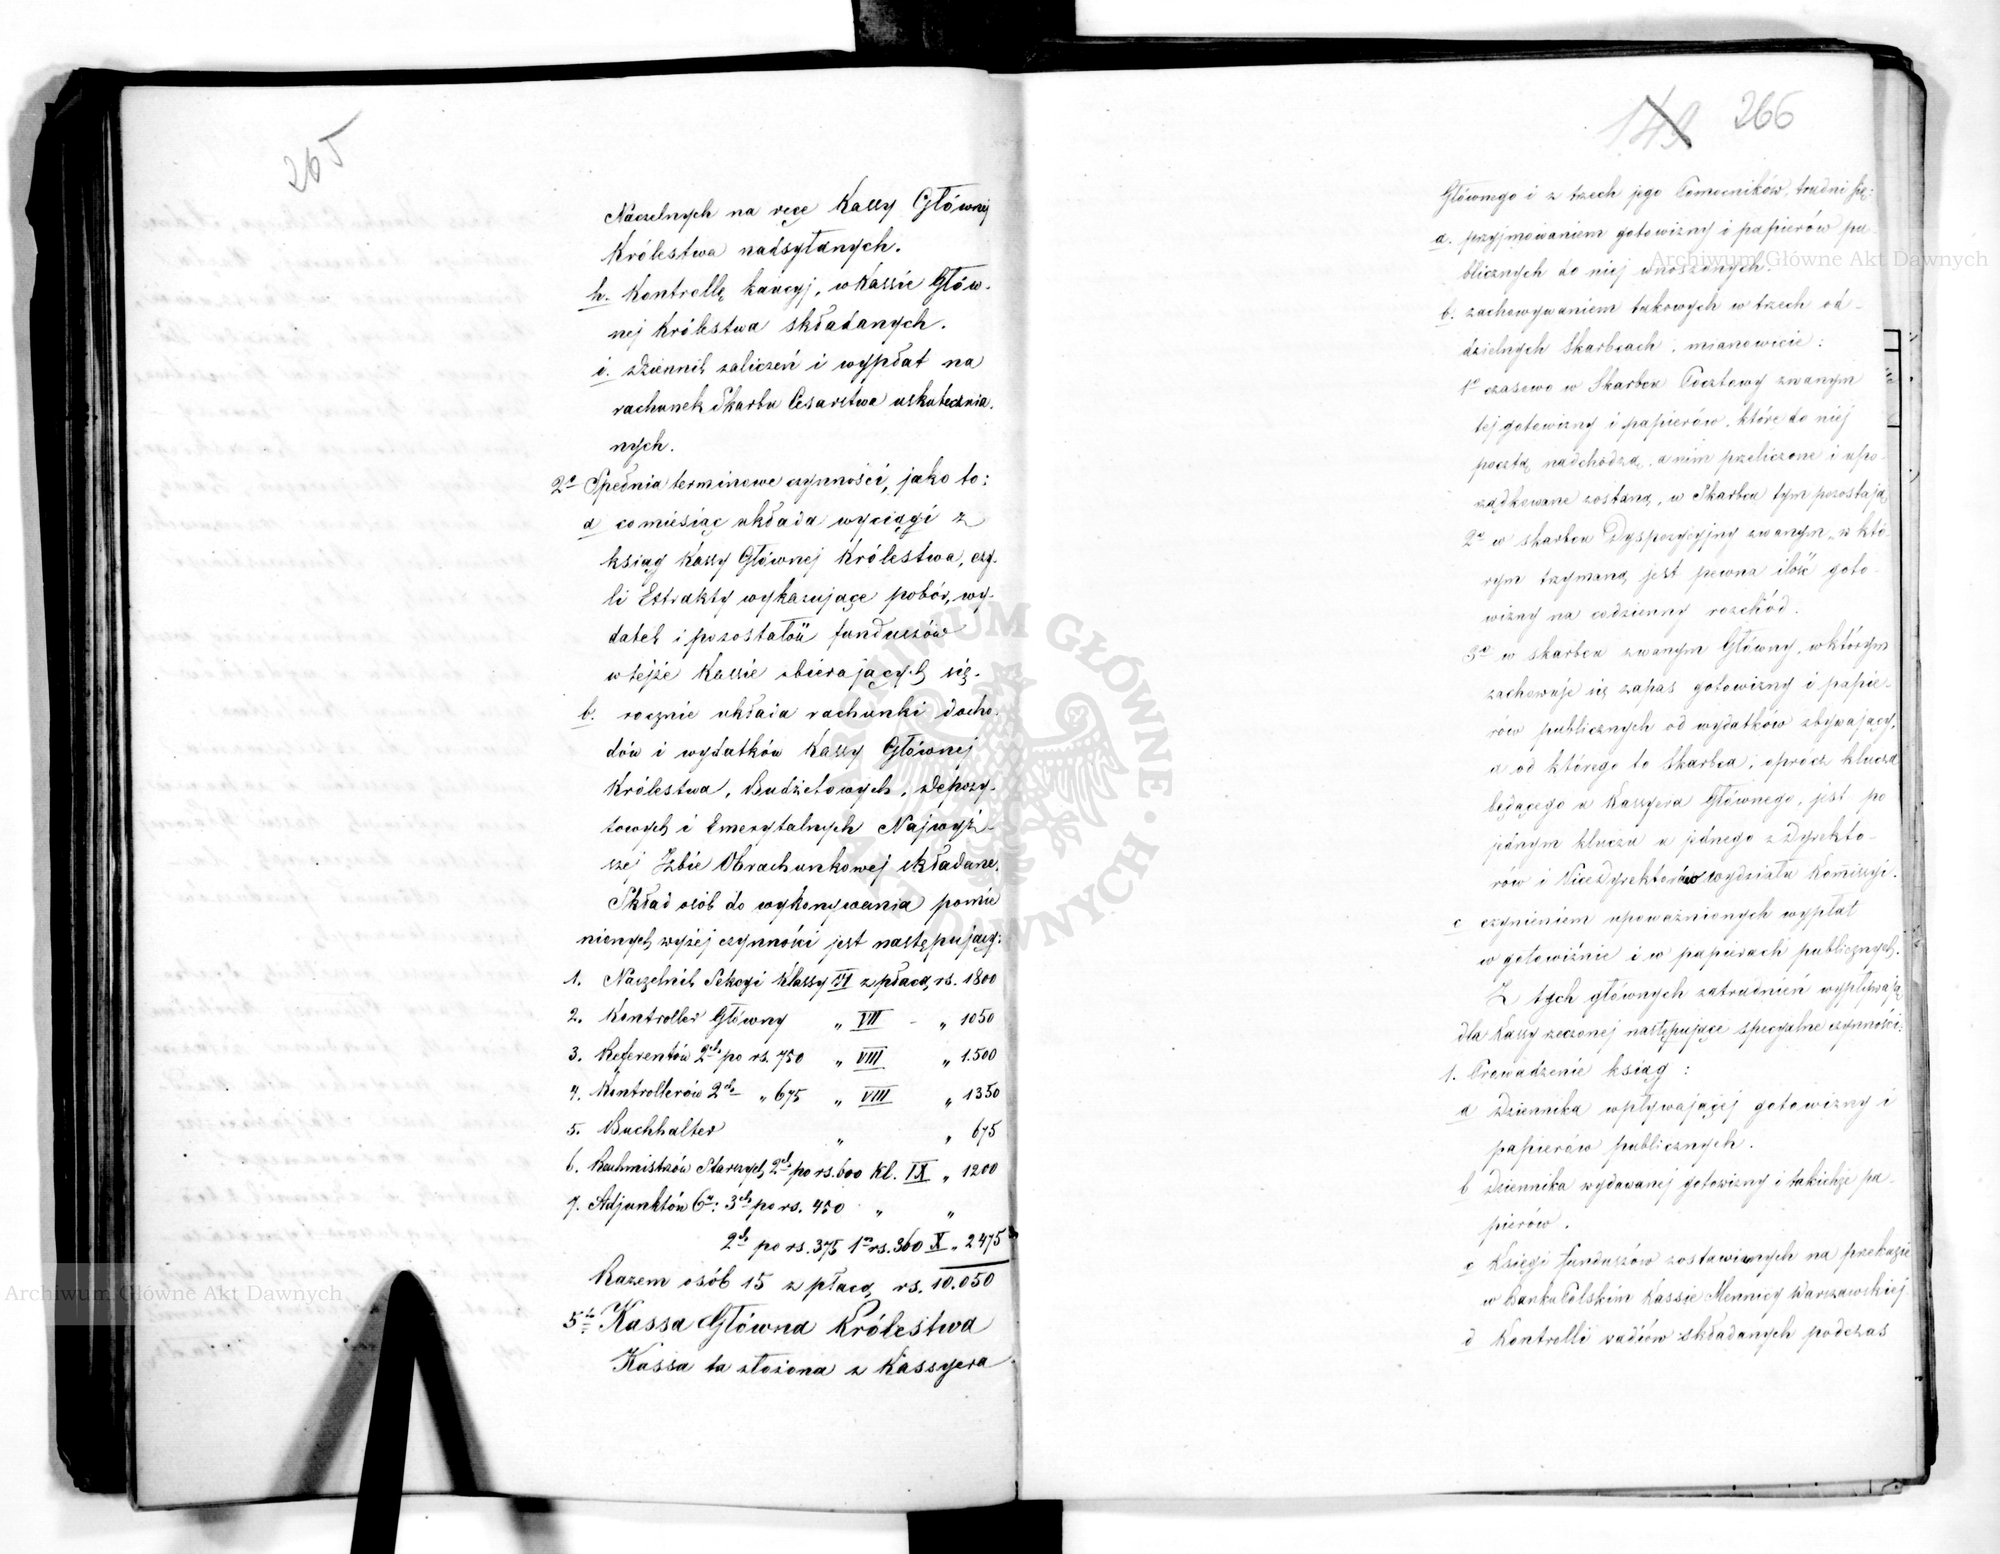 265
Naczelnych na ręce Kassy Głównej
Królestwa nadsyłanych.
h. Kontrollę kaucyj, w Kassie Głów-
nej Królestwa składanych.
i. Dziennik zaliczeń i wypłat na
rachunek Skarbu Cesarstwa uskutecznia-
nych.
2o Spełnia terminowe czynności, jako to:
a co miesiąc układa wyciągi z
ksiąg Kassy Głównej Królestwa, czy-
li Estrakty wykazujące pobór, wy-
datek i pozostałość funduszów
w tejże Kassie zbierających się.
b. rocznie układa rachunki docho-
dów i wydatków Kassy Głównej
Królestwa, Budżetowych, Depozy-
towych i Emerytalnych Najwyż-
szej Izbie Obrachunkowej składane.
Skład osób do wykonywania pomie
nionych wyżej czynności jest następujący:
1. Naczelnik Sekcyi klassy VI z płacą rs. 1800
2. Kontroller Główny „ VII - „ 1050
3. Referentów 2ch po rs. 750 „ VIII „ 1.500
4. Kontrollerów 2ch „ 675 „ VIII „ 1350
5. Buchhalter „ „ 675
6. Rachmistrzów Starszych 2ch po rs. 600 kl. IX „ 1200
7. Adjunktów 6u: 3ch po rs. 450 „ „
2ch po rs. 375 1n rs. 360 X „ 2475
Razem osób 15 z płacą rs. 10.050
5to Kassa Główna Królestwa
Kassa ta złożona z Kassyera
149 266
Głównego i z trzech jego Pomocników, trudni się:
a. przyjmowaniem gotowizny i papierów pu-
blicznych do niej wnoszonych.
b. zachowywaniem takowych w trzech od-
dzielnych Skarbcach, mianowicie:
1o czasowo w Skarbcu Pocztowy zwanym
tej gotowizny i papierów, które do niej
pocztą nadchodzą, a nim przeliczone i upo-
rządkowane zostaną, w Skarbcu tym pozostają
2o w skarbcu Dyspozycyjny zwanym, w któ-
rym trzymaną jest pewna ilość goto-
wizny na codzienny rozchód.
3o w skarbcu zwanym Główny, w którym
zachowuje się zapas gotowizny i papie-
rów publicznych od wydatków zbywający,
a od którego to Skarbca, oprócz klucza
będącego u Kassyera Głównego, jest po
jednym kluczu u jednego z Dyrekto-
rów i Vice Dyrektorów wydziału Kommissyi.
c czynieniem upoważnionych wypłat
w gotowiźnie i w papierach publicznych.
Z tych głównych zatrudnień wypływają
dla Kassy rzeczonej następujące specyalne czynności:
1. Prowadzenie ksiąg:
a Dziennika wpływającej gotowizny i
papierów publicznych.
b Dziennika wydawanej gotowizny i takichże pa-
pierów.
c Księgi funduszów zostawionych na przekazie
w Banku Polskim Kassie Mennicy Warszawskiej
d Kontrolli vadiów składanych podczas
Archiwum Główne Akt Dawnych
Archiwum Główne Akt Dawnych
ARCHIWUM GŁÓWNE AKT DAWNYCH